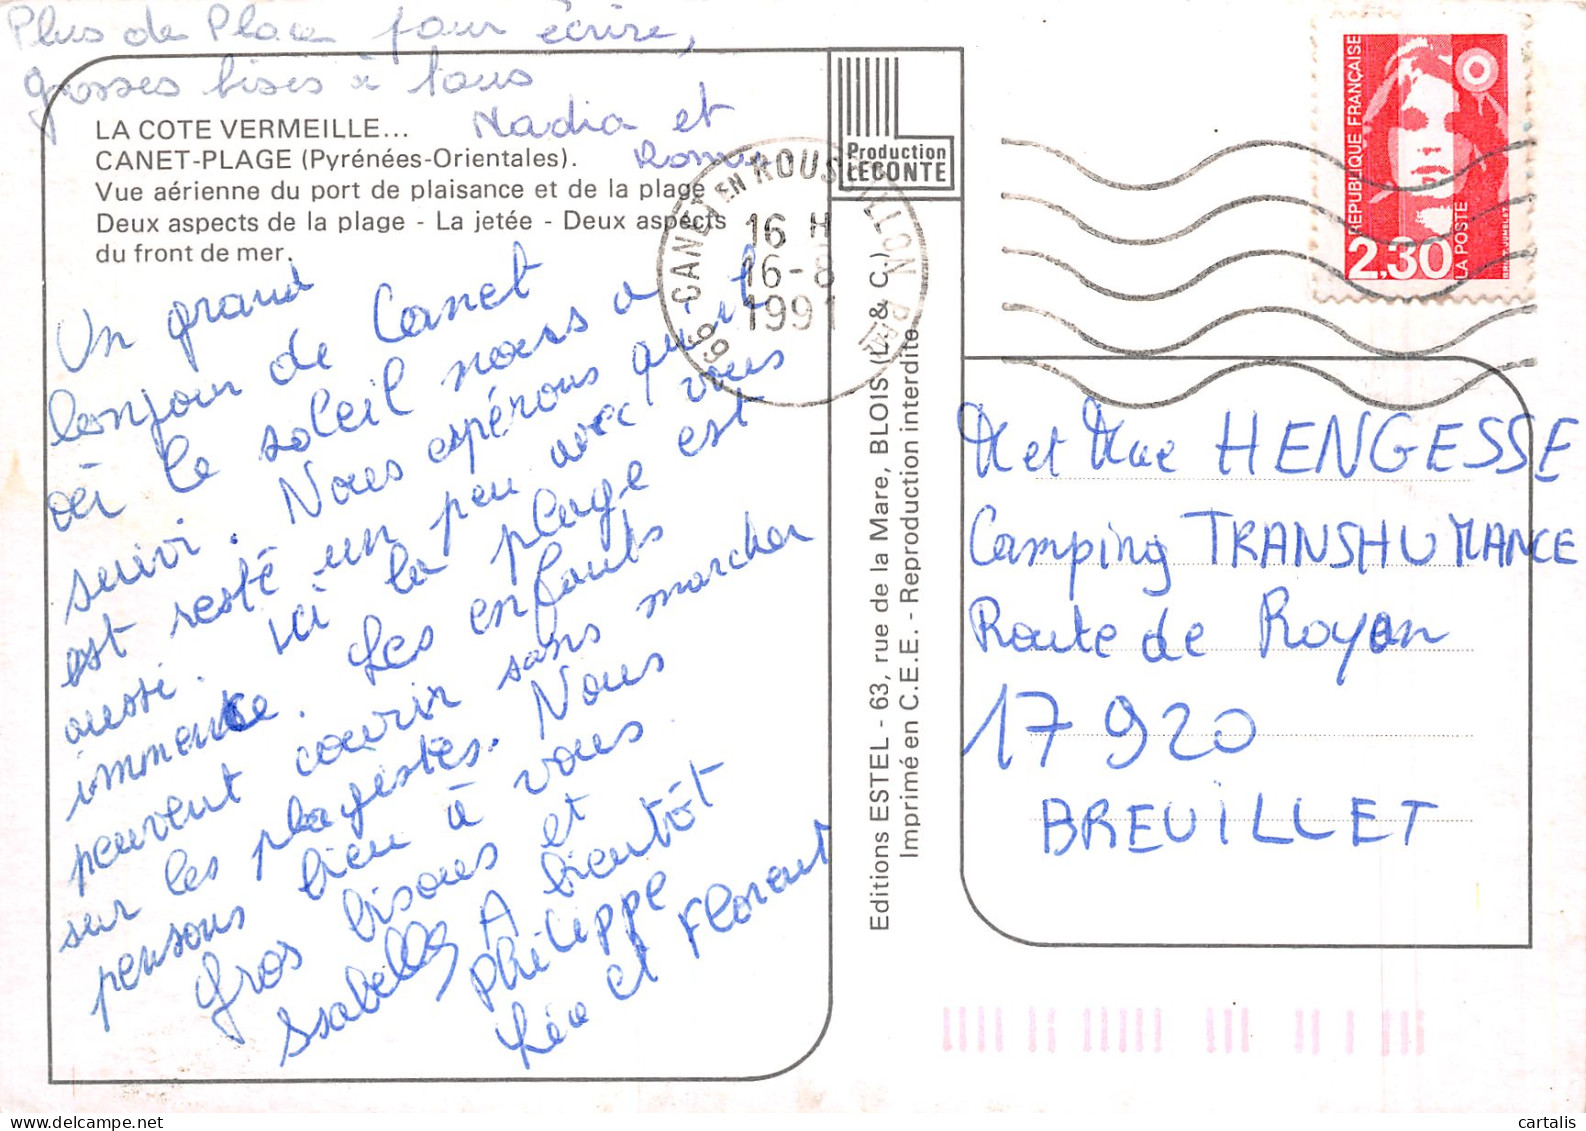 Plus de Place pour écrire,
grosses bises à tous
Nadia et
LA COTE VERMEILLE...
CANET-PLAGE (Pyrénées-Orientales).
Vue aérienne du port de plaisance et de la plage
Deux aspects de la plage - La jetée - Deux aspects
du front de mer.
Un grand
bonjour de Canet
où le soleil nous a
suivi. Nous espérons qu'il
est resté un peu avec vous
aussi. Ici la plage est
immense. Les enfants
peuvent courir sans marcher
sur les plagistes. Nous
pensons bien à vous
Gros bisous et
A bientôt
Isabelle Philippe
Léa et Florent
Production
LECONTE
66 - CANET EN ROUSSILLON
16 H
16-8
1991
Editions ESTEL - 63, rue de la Mare, BLOIS (L. & C.)
Imprimé en C.E.E. - Reproduction interdite
REPUBLIQUE FRANÇAISE
2,30
LA POSTE
M et Mme HENGESSE
Camping TRANSHUMANCE
Route de Royan
17 920
BREUILLET
cartalis